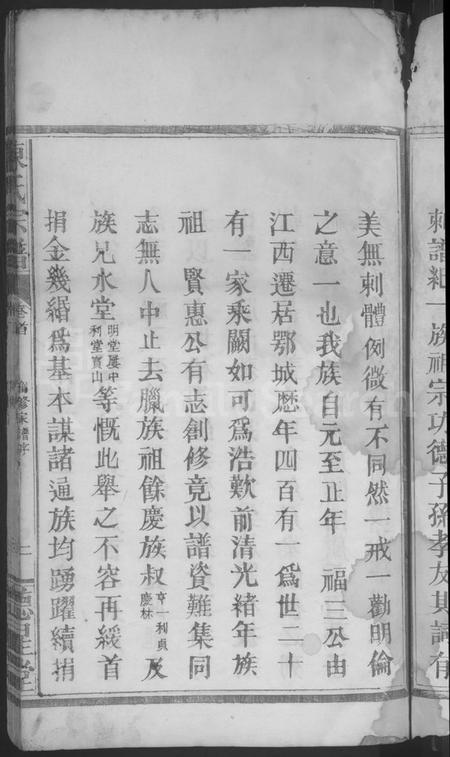 刺譜紀一族祖宗功德子孫孝友其詞有
美無刺體例微有不同然一戒一勸明倫
之意一也我族自元至正年　福三公由
江西遷居鄂城歷年四百有一為世二十
有一家乘闕如可為浩歎前清光緒年族
祖　賢惠公有志創修竟以譜資難集同
志無人中止去臘族祖餘慶族叔亨一利貞慶林及
族兄水堂明堂屢中利堂寶山等慨此舉之不容再緩首
捐金幾緡為基本謀諸通族均踴躍續捐
陳氏宗譜 卷首 德星堂